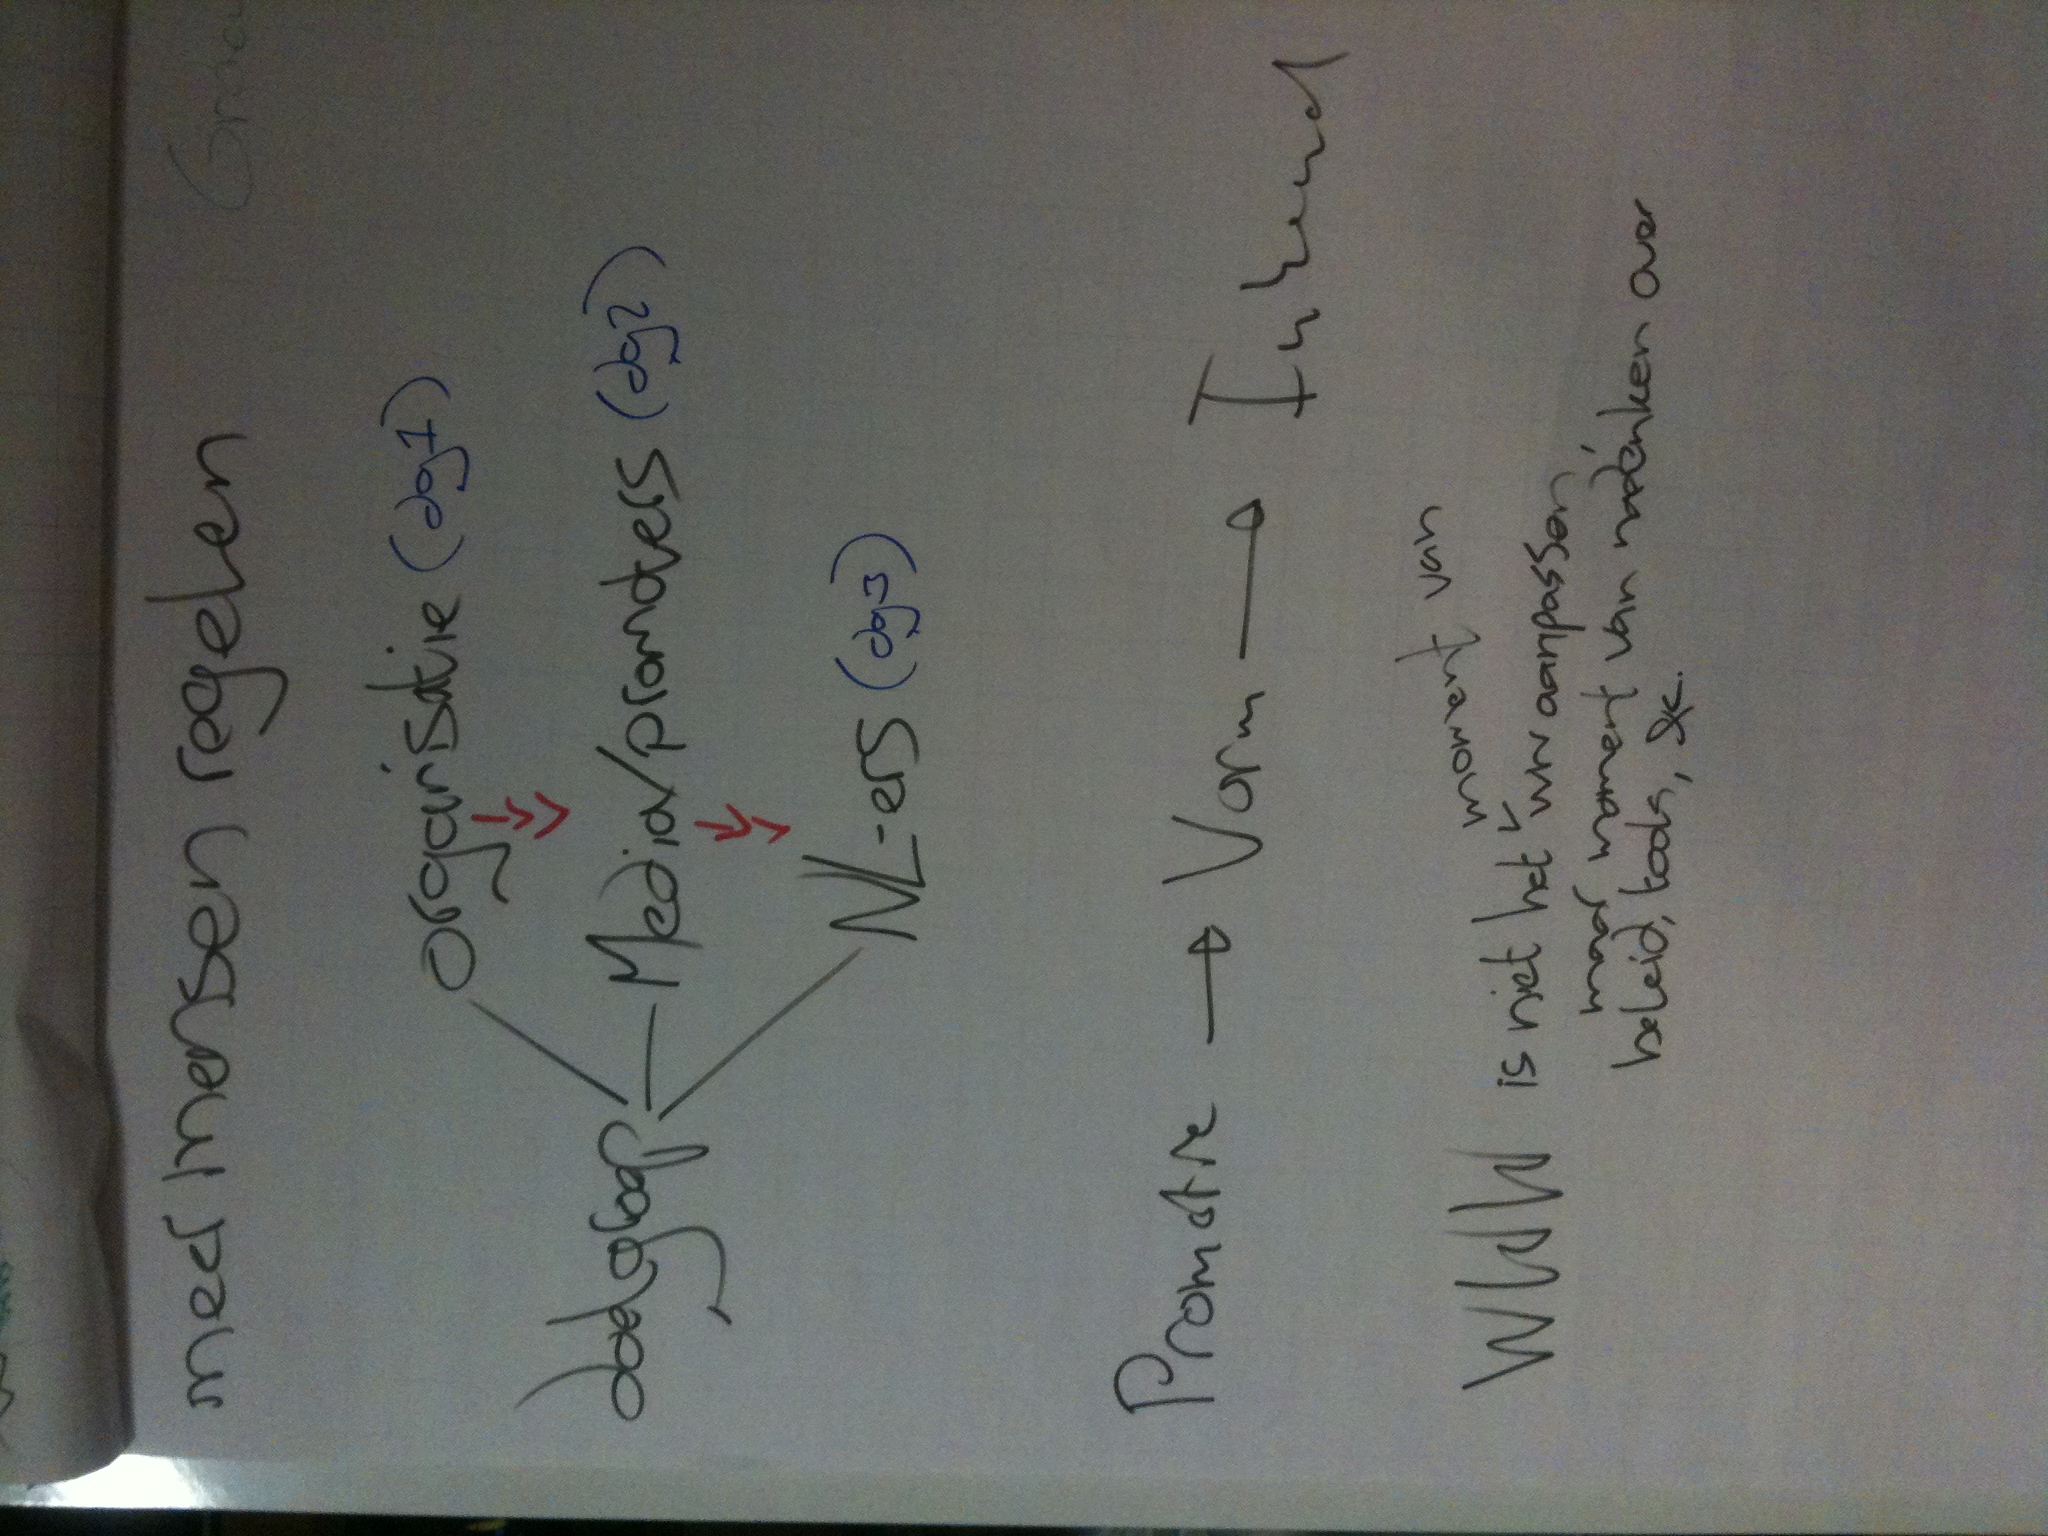 meer mensen regelen
organisatie (dg1)
doelgroep
Media/promoters (dg2)
NL-ers (dg3)
Promotie → Vorm → Inhoud
moment van
WWW is niet het uw aanpassen,
maar moment van nadenken over
beleid, tools, etc.